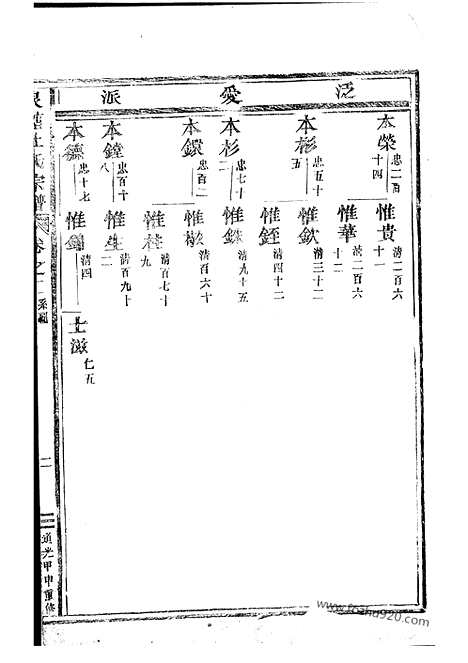 泛愛派
本榮 忠二百十四
惟貴 清二百六十一
惟華 清二百六十二
本杉 忠五十五
惟欽 清三十二
惟銍 清四十二
本杉 忠七十二
惟 清九十五
本鐶 忠百二
惟 清百六十
惟桂 清百七十九
本鐘 忠百十八
惟生 清百九十二
本鐃 忠十七
惟 清四
士滋 仁五
杜氏宗譜 卷之二 系圖
二
道光甲申重修
www.foahu920.com